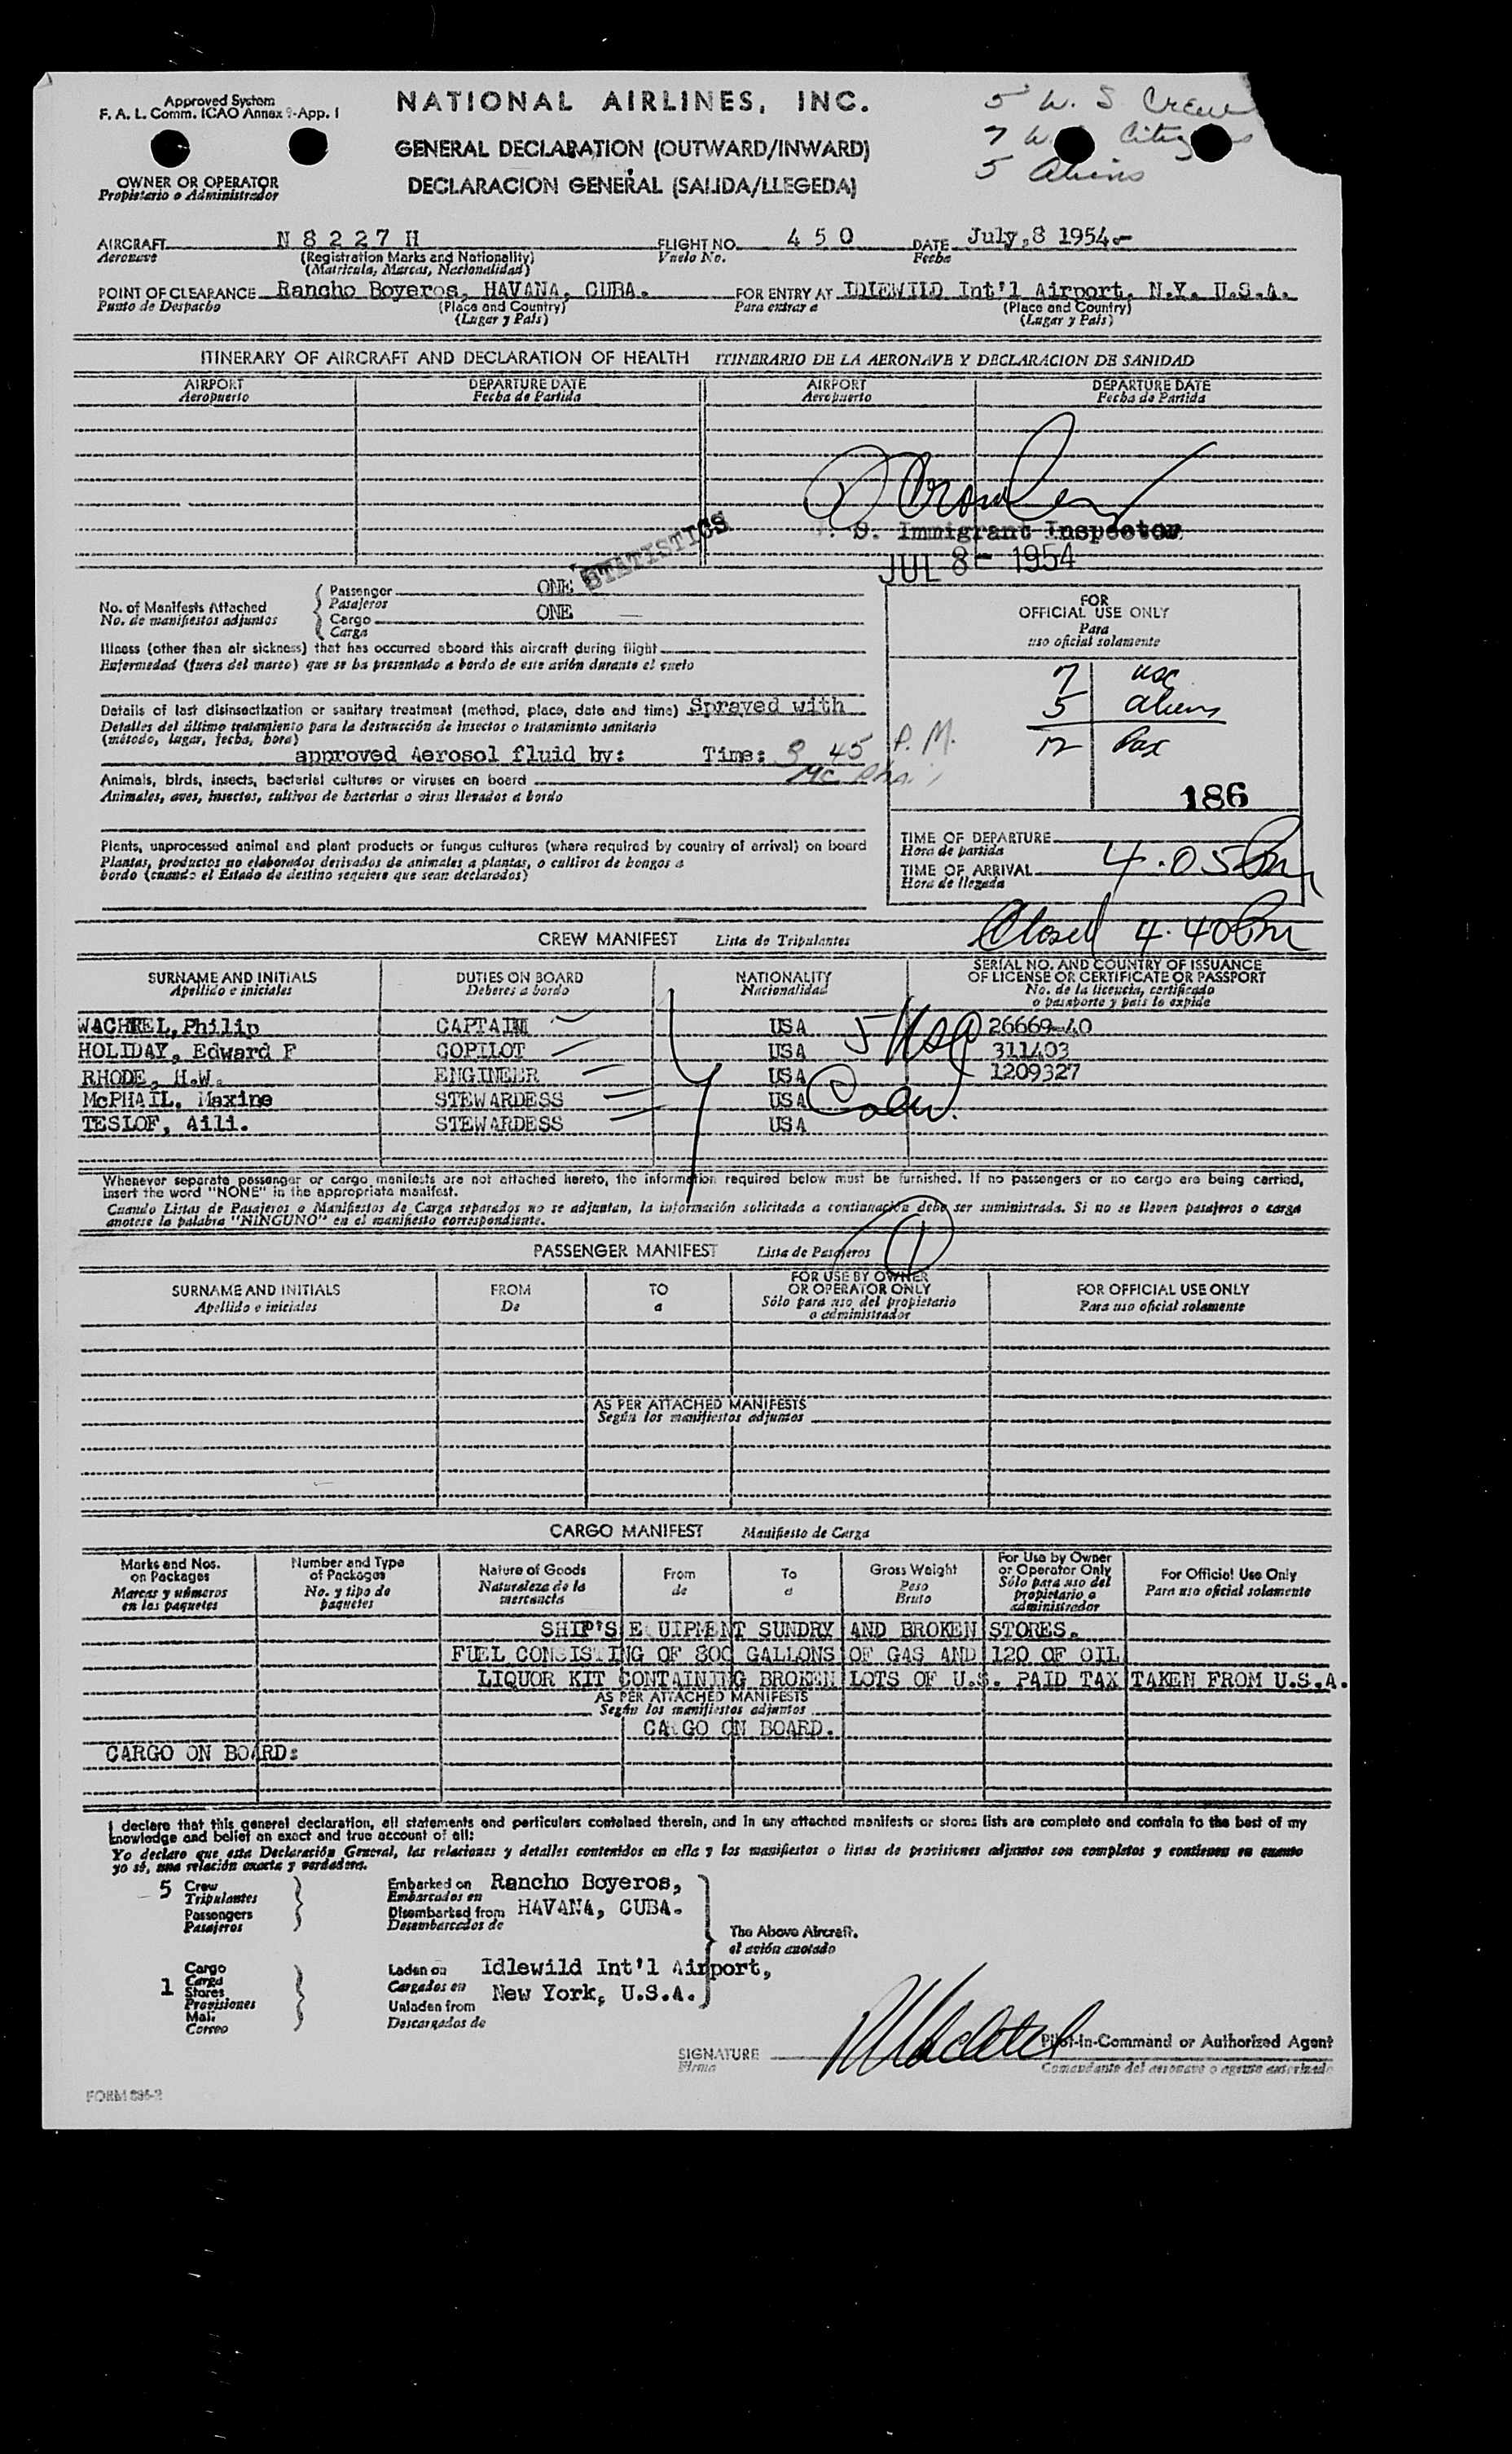 Approved System
F. A. L. Comm. ICAO Annex 9-App. 1
NATIONAL AIRLINES, INC.
5 U. S Crew
7 U
5 Aliens
GENERAL DECLARATION (OUTWARD/INWARD)
DECLARACION GENERAL (SALIDA/LLEGEDA)
OWNER OR OPERATOR
Propietario o Administrador
AIRCRAFT N 8 2 2 7 H FLIGHT NO. 4 5 0 DATE July,8 1954-
Aeronave (Registration Marks and Nationality) Vuelo No. Fecha
(Matricula, Marcas, Nacionalidad)
POINT OF CLEARANCE Rancho Boyeros, HAVANA, CUBA. FOR ENTRY AT IDLEWILD Int'l Airport, N.Y. U.S.A.
Punto de Despacho (Place and Country) Para entrar a (Place and Country)
(Lugar y Pais) (Lugar y Pais)
ITINERARY OF AIRCRAFT AND DECLARATION OF HEALTH ITINERARIO DE LA AERONAVE Y DECLARACION DE SANIDAD
AIRPORT DEPARTURE DATE AIRPORT DEPARTURE DATE
Aeropuerto Fecha de Partida Aeropuerto Fecha de Partida
Crowley
S. Immigrant Inspector
JUL 8- 1954
STATISTICS
No. of Manifests Attached Passenger ONE
No. de manifiestos adjuntos Pasajeros
Cargo ONE
Carga
FOR
OFFICIAL USE ONLY
Para
uso oficial solamente
Illness (other than air sickness) that has occurred aboard this aircraft during flight
Enfermedad (fuera del mareo) que se ha presentado a bordo de este avión durante el vuelo
7 usc
5 aliens
12 Pax
186
Details of last disinsectization or sanitary treatment (method, place, date and time) Sprayed with
Detalles del último tratamiento para la destrucción de insectos o tratamiento sanitario
(método, lugar, fecha, hora)
approved Aerosol fluid by: Time: 3 45 P.M.
Animals, birds, insects, bacterial cultures or viruses on board
Animales, aves, insectos, cultivos de bacterias o virus llevados a bordo
Plants, unprocessed animal and plant products or fungus cultures (where required by country of arrival) on board
Plantas, productos no elaborados derivados de animales a plantas, o cultivos de hongos a
bordo (cuando el Estado de destino requiere que sean declarados)
TIME OF DEPARTURE
Hora de partida
TIME OF ARRIVAL 4.05 Pm
Hora de llegada
Closed 4.40 Pm
CREW MANIFEST Lista de Tripulantes
SURNAME AND INITIALS DUTIES ON BOARD NATIONALITY SERIAL NO. AND COUNTRY OF ISSUANCE
OF LICENSE OR CERTIFICATE OR PASSPORT
Apellido e iniciales Deberes a bordo Nacionalidad No. de la licencia, certificado
o pasaporte y pais lo expide
WACHTEL,Philip CAPTAIN USA 26669-40
HOLIDAY, Edward F COPILOT USA 311403
RHODE, H.W. ENGINEER USA 1209327
McPHAIL, Maxine STEWARDESS USA
TESLOF, Aili. STEWARDESS USA
5 usc
Crew.
Whenever separate passenger or cargo manifests are not attached hereto, the information required below must be furnished. If no passengers or no cargo are being carried,
insert the word "NONE" in the appropriate manifest.
Cuando Listas de Pasajeros o Manifiestos de Carga separados no se adjuntan, la información solicitada a continuación debe ser suministrada. Si no se lleven pasajeros o carga
anotese la palabra "NINGUNO" en el manifiesto correspondiente.
PASSENGER MANIFEST Lista de Pasajeros 1
SURNAME AND INITIALS FROM TO FOR USE BY OWNER OR OPERATOR ONLY FOR OFFICIAL USE ONLY
Apellido e iniciales De a Sólo para uso del propietario o administrador Para uso oficial solamente
AS PER ATTACHED MANIFESTS
Según los manifiestos adjuntos
CARGO MANIFEST Manifiesto de Carga
Marks and Nos. on Packages Number and Type of Packages Nature of Goods From To Gross Weight For Use by Owner or Operator Only For Official Use Only
Marcas y números en los paquetes No. y tipo de paquetes Naturaleza de la mercancia de a Peso Bruto Sólo para uso del propietario o administrador Para uso oficial solamente
SHIP'S E UIPMENT SUNDRY AND BROKEN STORES.
FUEL CONSISTING OF 800 GALLONS OF GAS AND 120 OF OIL
LIQUOR KIT CONTAINING BROKEN LOTS OF U.S. PAID TAX TAKEN FROM U.S.A.
AS PER ATTACHED MANIFESTS
Según los manifiestos adjuntos
CARGO ON BOARD.
CARGO ON BOARD:
I declare that this general declaration, all statements and particulars contained therein, and in any attached manifests or stores lists are complete and contain to the best of my
knowledge and belief an exact and true account of all:
Yo declaro que esta Declaración General, las relaciones y detalles contenidos en ella y los manifiestos o listas de provisiones adjuntos son completos y contienen en cuanto
yo sé, una relación exacta y verdadera.
5 Crew Embarked on Rancho Boyeros,
Tripulantes Embarcados en
Passengers Disembarked from HAVANA, CUBA.
Pasajeros Desembarcados de
The Above Aircraft.
el avión anotado
Cargo Laden on Idlewild Int'l Airport,
1 Carga Cargados en New York, U.S.A.
Stores
Provisiones Unladen from
Mail Descargados de
Correo
SIGNATURE P Wachtel Pilot-in-Command or Authorized Agent
Firma Comandante del aeronave o agente autorizado
FORM 895-2